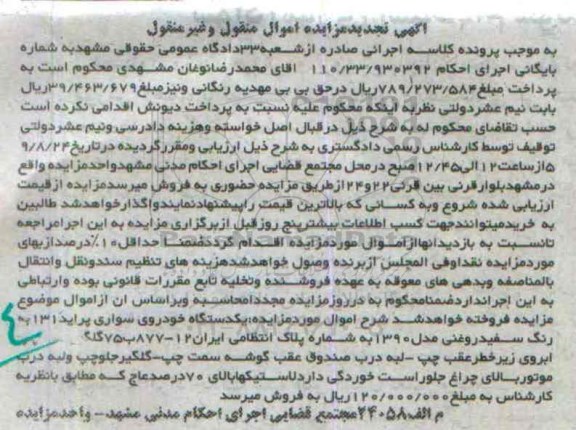 آگهی تجدیدمزایده اموال منقول وغیرمنقول
به موجب پرونده کلاسه اجرائی صادره ازشعبه۳۳دادگاه عمومی حقوقی مشهدبه شماره
بایگانی اجرای احکام ۱۱۰/۳۳/۹۳۰۳۹۲ آقای محمدرضانوغان مشهدی محکوم است به
پرداخت مبلغ۷۸۹/۲۷۳/۵۸۴ریال درحق بی بی مهدیه رنگانی ونیزمبلغ۳۹/۴۶۳/۶۷۹ریال
بابت نیم عشردولتی نظربه اینکه محکوم علیه نسبت به پرداخت دیونش اقدامی نکرده است
حسب تقاضای محکوم له به شرح ذیل درقبال اصل خواسته وهزینه دادرسی ونیم عشردولتی
توقیف توسط کارشناس رسمی دادگستری به شرح ذیل ارزیابی ومقررگردیده درتاریخ۹/۸/۲۴
۵ازساعت۱۲الی۱۲/۴۵صبح درمحل مجتمع قضایی اجرای احکام مدنی مشهدواحدمزایده واقع
درمشهدبلوارقرنی بین قرنی۲۲و۲۴ازطریق مزایده حضوری به فروش میرسدمزایده ازقیمت
ارزیابی شده شروع وبه کسانی که بالاترین قیمت راپیشنهادنمایندواگذارخواهدشد طالبین
به خریدمیتوانندجهت کسب اطلاعات بیشترپنج روزقبل ازبرگزاری مزایده به این اجرامراجعه
تانسبت به بازدیدانهاازاموال موردمزایده اقدام گرددضمنا حداقل۱۰٪درصدازبهای
موردمزایده نقداوفی المجلس ازبرنده وصول خواهدشدهزینه های تنظیم سندونقل وانتقال
بالمناصفه وبدهی های معوقه به عهده فروشنده وتخلیه تابع مقررات قانونی بوده وارتباطی
به این اجرانداردضمنامحکوم به درروزمزایده مجددامحاسبه وبراساس ان ازاموال موضوع
مزایده فروخته خواهدشد شرح اموال موردمزایده:یکدستگاه خودروی سواری پراید۱۳۱به
رنگ سفیدروغنی مدل۱۳۹۰به شماره پلاک انتظامی ایران۱۲-۸۷۷ب۷۵گلگ
ابروی زیرخطرعقب چپ -لبه درب صندوق عقب گوشه سمت چپ-گلگیرجلوچپ ولبه درب
موتوربالای چراغ جلوراست خوردگی داردلاستیکهابالای ۷۰درصدعاج که مطابق بانظریه
کارشناس به مبلغ۱۲۰/۰۰۰/۰۰۰ریال به فروش میرسد
م الف۲۴۰۵۸مجتمع قضایی اجرای احکام مدنی مشهد- واحدمزایده